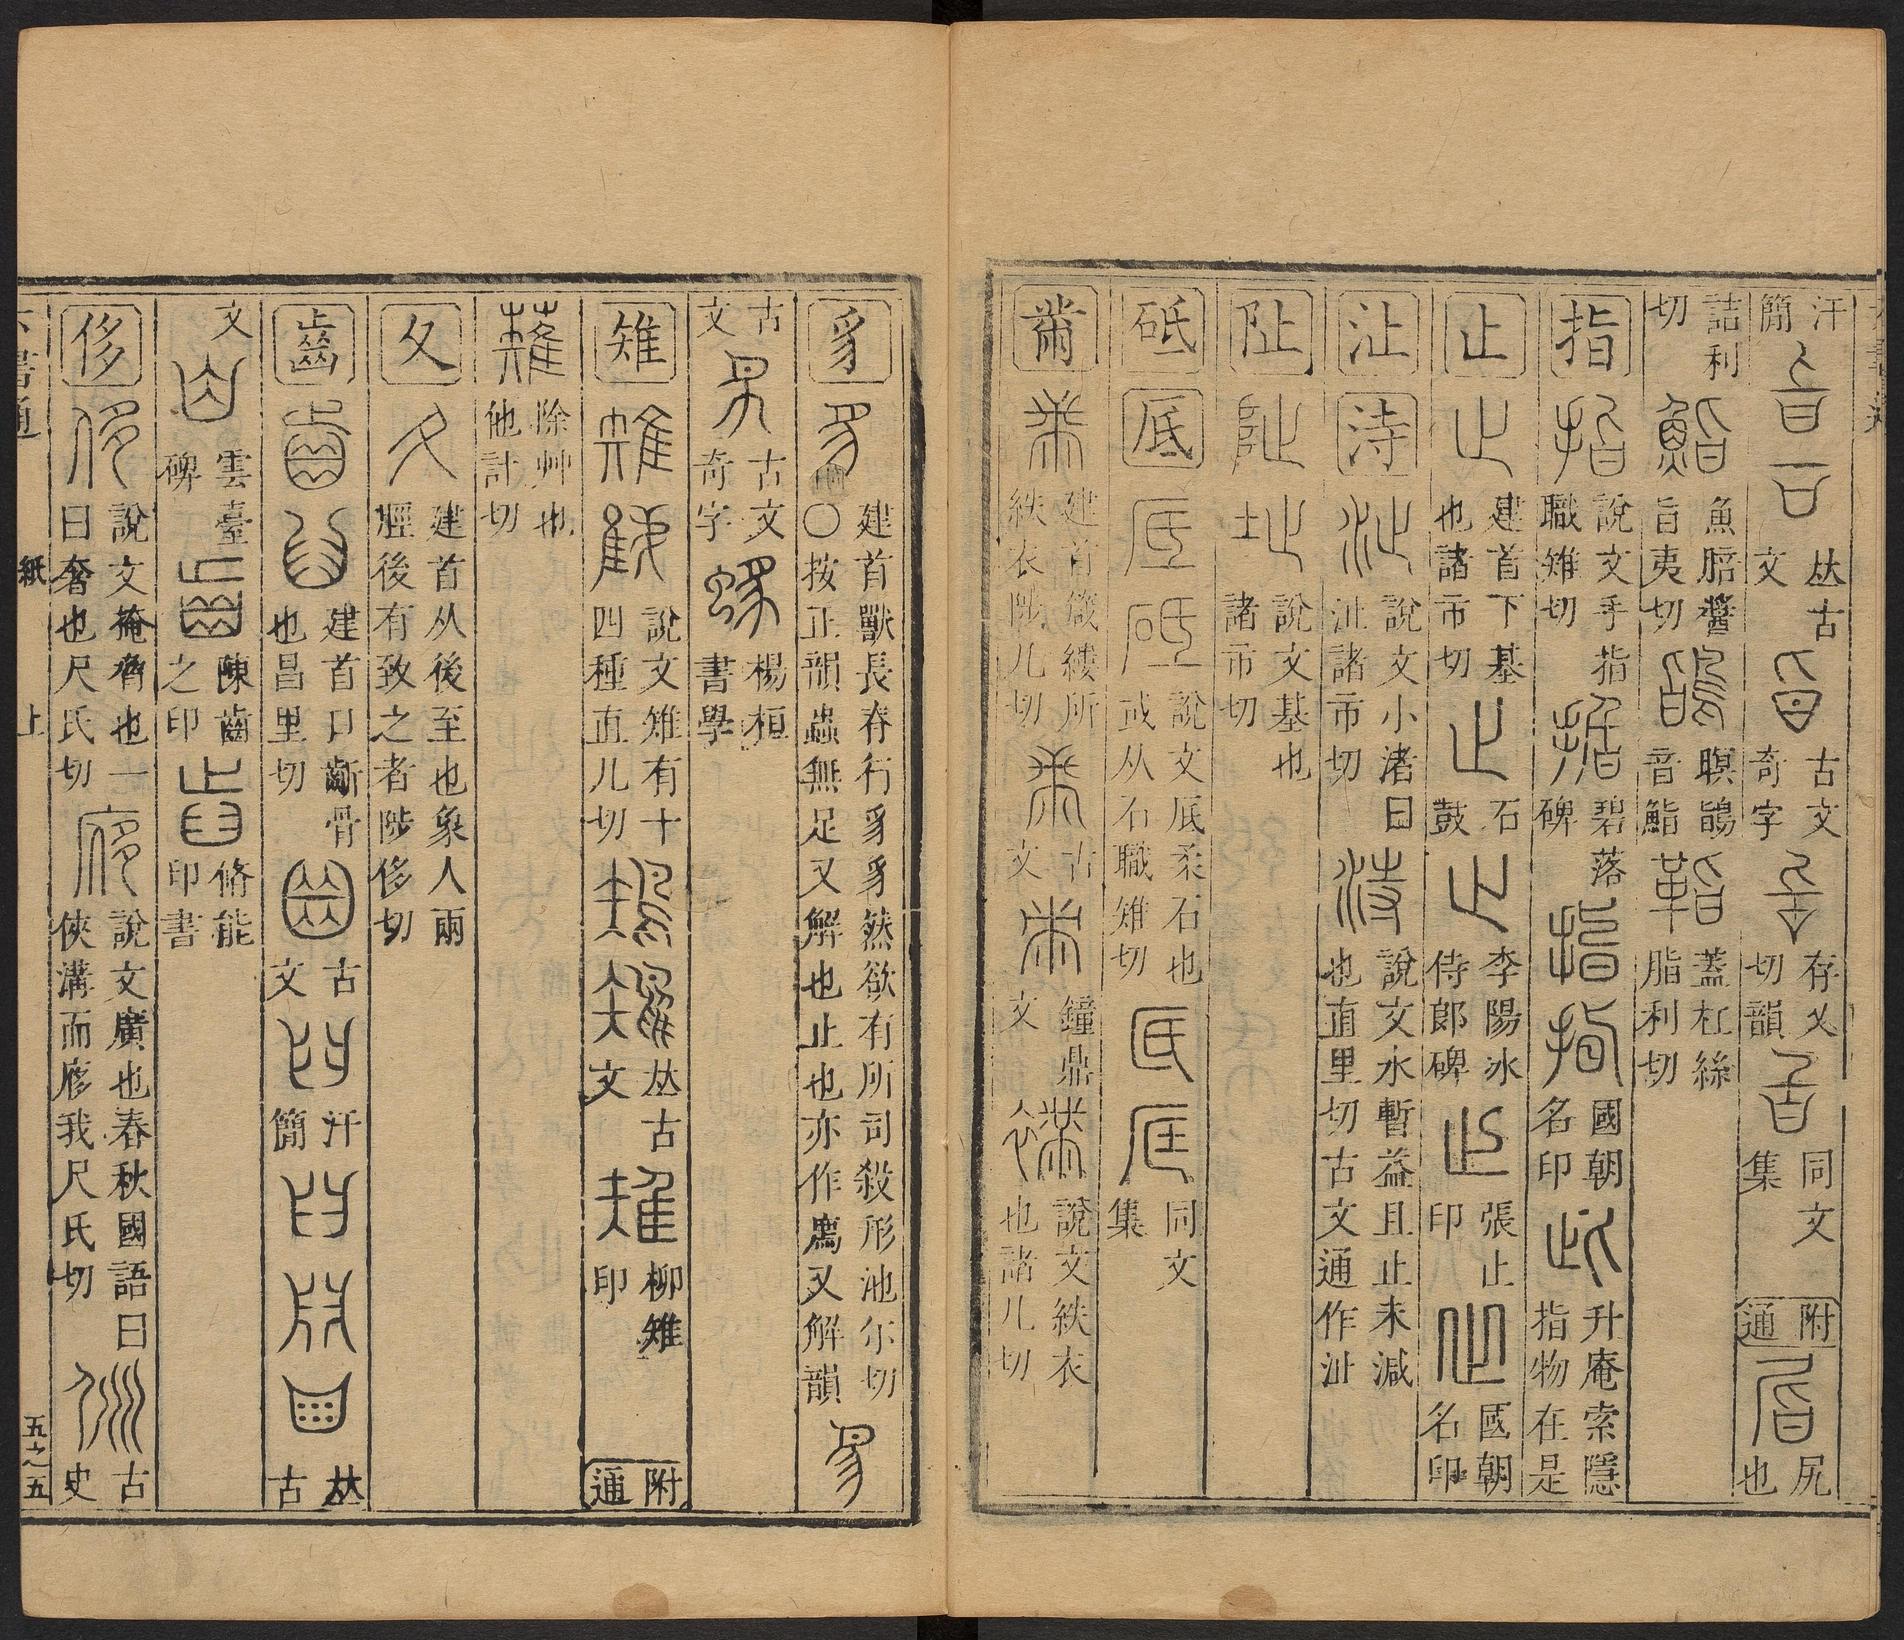 汗簡 𠀤古文 古文奇字 存乂切韻 同文集 附通 尻也
詰利切 魚䐹醬旨夷切 瞑鴲音鮨 蓋杠絲脂利切
指 說文手指職雉切 碧落碑 國朝名印 升庵索隱指物在是
止 建首下基也諸市切 石鼓 李陽冰侍郎碑 張止印 國朝名印
沚 洔 說文小渚曰沚諸市切 說文水暫益且止未減也直里切古文通作沚
阯 說文基也諸市切
砥 底 說文底柔石也或从石職雉切 同文集
黹 建首箴縷所紩衣陟几切 古文 鐘鼎文 說文紩衣也諸几切
豸 建首獸長脊行豸豸然欲有所司殺形池尒切〇按正韻蟲無足又解也止也亦作廌又解韻
古文 古文奇字 楊桓書學
雉 說文雉有十四種直几切 𠀤古文 柳雉印 附通
薙 除艸也他計切
夂 建首从後至也象人兩脛後有致之者陟侈切
齒 建首口齗骨也昌里切 古文 汗簡 𠀤古
文 雲臺碑 陳齒之印 脩能印書
侈 說文掩脅也一曰奢也尺氏切 說文廣也春秋國語曰俠溝而㢋我尺氏切 古史
六書通 紙 上 五之五